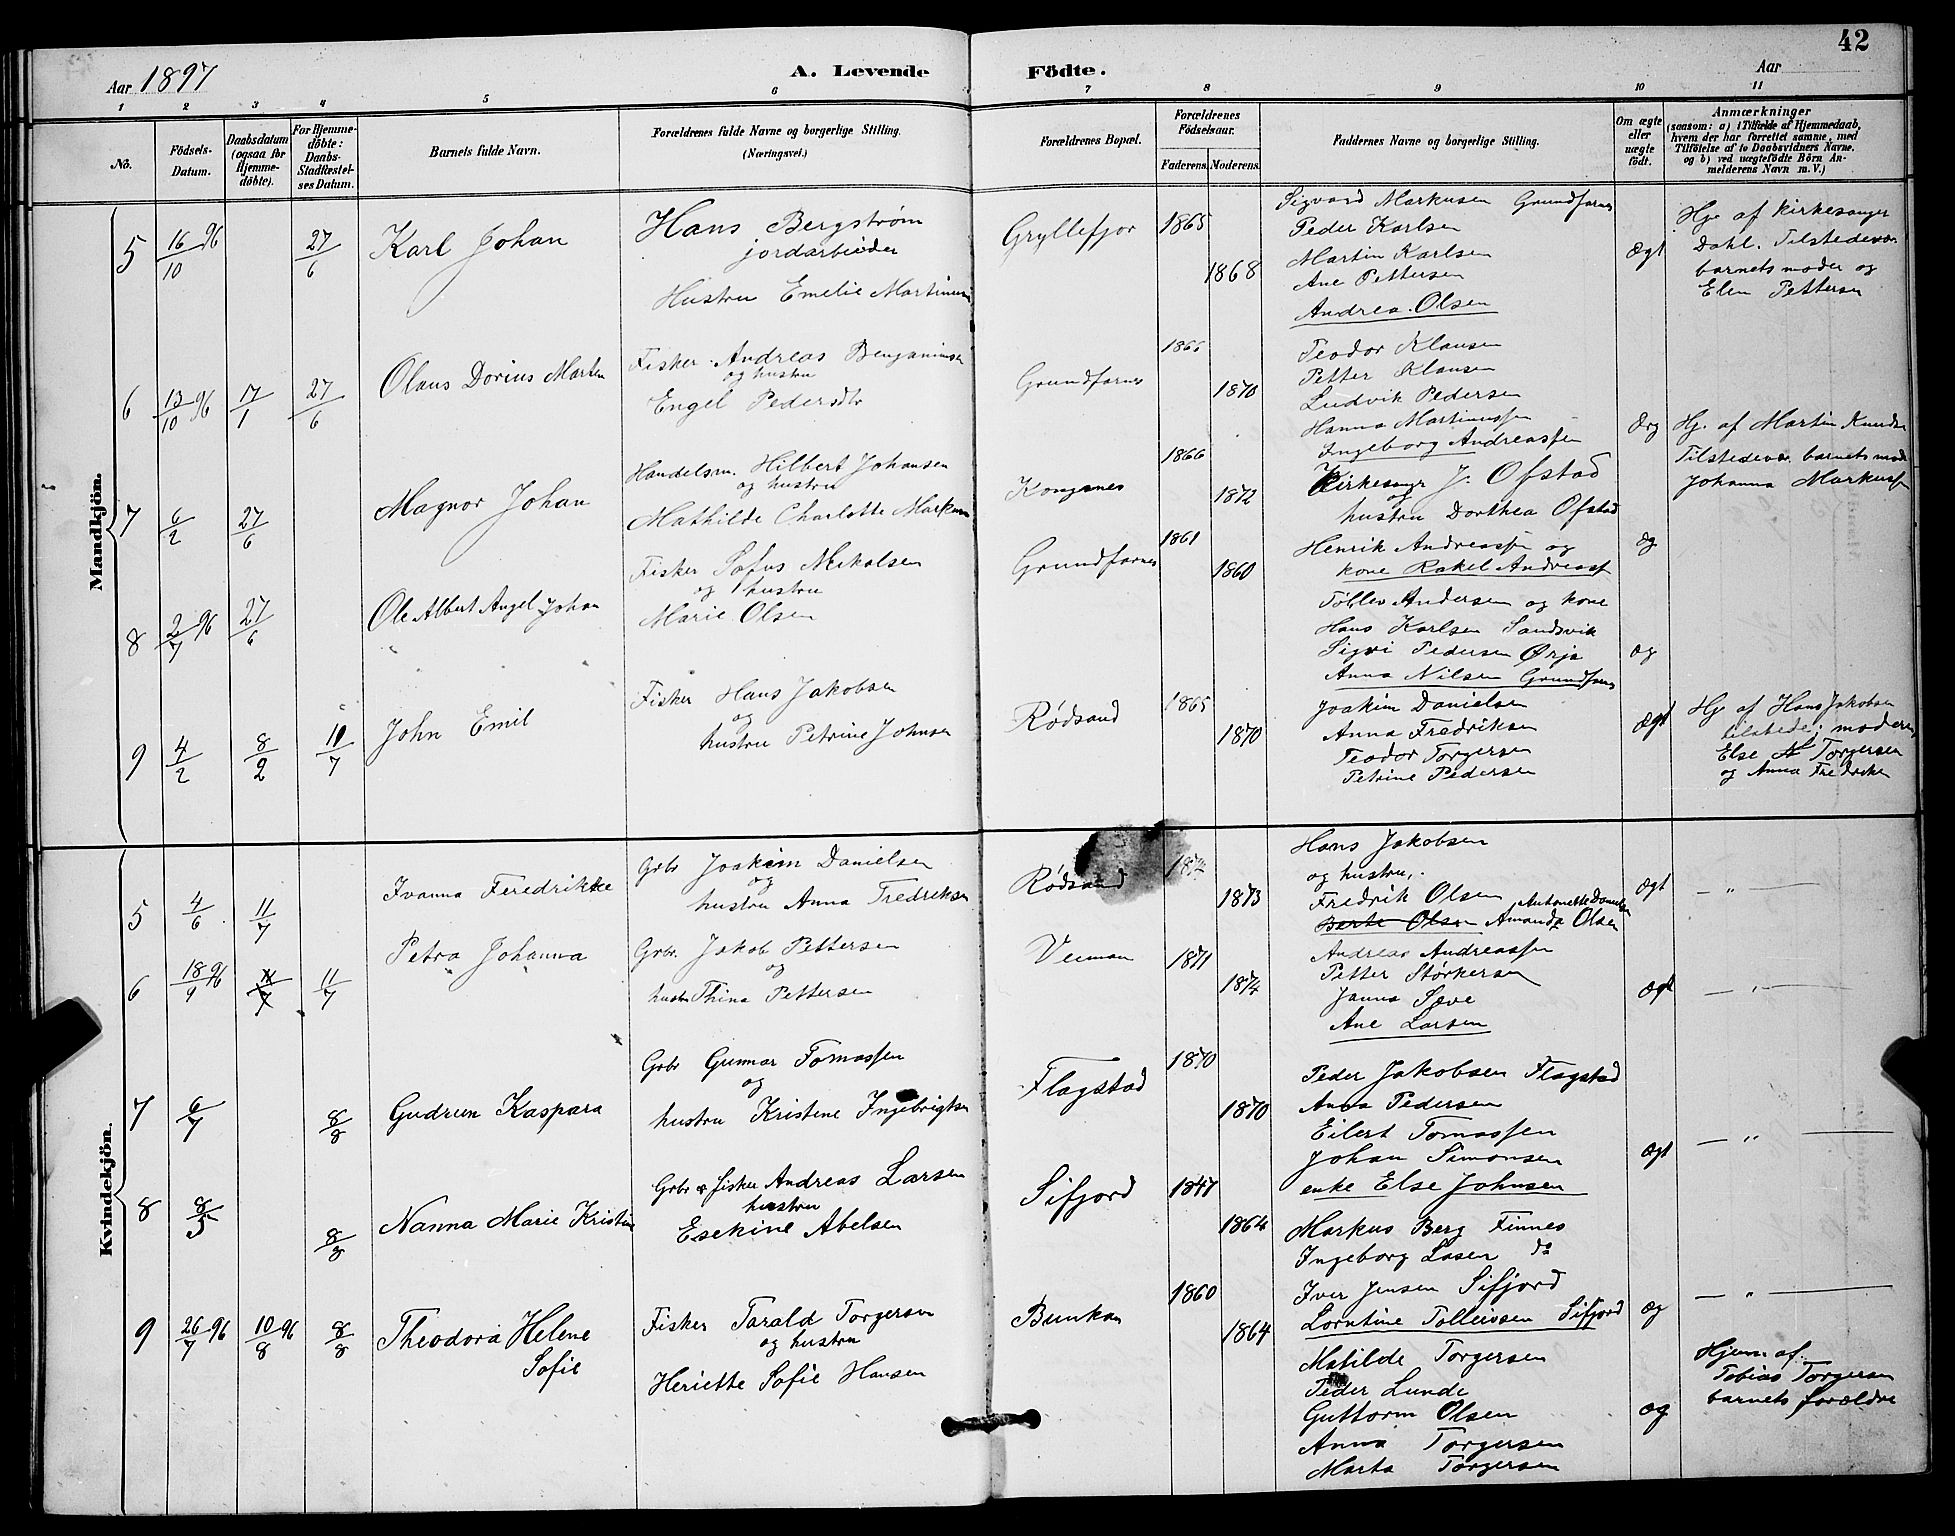 42
Aar 1897
A. Levende Födte.
Aar
1 2 3 4 5 6 7 8 9 10 11
No.
Födsels-
Datum.
Daabsdatum
(ogsaa for
Hjemme-
döbte).
For Hjemme-
döbte:
Daabs-
Stadfæstel-
ses Datum.
Barnets fulde Navn.
Forældrenes fulde Navne og borgerlige Stilling.
(Næringsvei.)
Forældrenes Bopæl.
Forældrenes
Födselsaar.
Faderens. Moderens.
Faddernes Navne og borgerlige Stilling.
Om ægte
eller
uægte
födt.
Anmærkninger
(saasom: a) i Tilfælde af Hjemmedaab,
hvem der har forrettet samme, med
Tilföielse af to Daabsvidners Navne,
og b) ved uægtefödte Börn An-
melderens Navn m. V.)
Mandkjön.
5 16/10 96 27/6 Karl Johan
Hans Bergstrøm
jordarbeider
Hustru Emelie
Gryllefjor 1865 1868
Sigvard Markusen Grundfarnes
Peder Karlsen
Martin Karlsen
Ane Pettersen
Andrea Olsen
Ægt
Hj. af kirkesanger
Dahl. Tilstedevær
barnets moder og
Elen Pettersen
6 13/10 96 17/1 27/6 Olaus Dorius Marten
Fisker Andreas Benjaminsen
og hustru
Engel Pedersdtr
Grundfarnes 1870
Teodor Klausen
Petter Klausen
Ludvik Pedersen
Hanna Martinussen
Ingeborg Andreassen
Hj. af Martin Knudsen
Tilstedevær. barnets mod
Johanna Markussen
7 6/2 27/6 Magnor Johan
Handelsm. Hilbert Johansen
og hustru
Mathilde Charlotte Markusen
Kongsnes 1866 1872
Kirkesangr J. Ofstad
og
hustru Dorthea Ofstad
æg
8 2/7 96 27/6 Ole Albert Angel Johan
Fisker Sofus Nikolsen
og hustru
Marie Olsen
Grundfarnes 1861 1860
Henrik Andreassen og
kone Rakel Andreass
Tollev Andersen og kone
Hans Karlsen Sandsvik
Sigvi Pedersen Ørja
Anna Nilsen Grundfarnes
æg
9 4/2 8/2 11/7 John Emil
Fisker Hans Jakobsen
og
hustru Petrine Johnsen
Rødsand 1865 1870
Joakim Danielsen
Anna Fredriksen
Teodor Torgersen
Petrine Pedersen
Ægt
Hj. af Hans Jakobsen
tilstede; moderen,
Else Torgersen
og Anna Fredriksen
Kvindekjön.
5 4/6 11/7 Ivanna Feredrikke
Grbr Joakim Danielsen
og
hustru Anna Fredriksen
Rødsand 1873
Hans Jakobsen
og hustru,
Fredrik Olsen Antonette Danielsen
Berte Olsen Amanda Olsen
Ægt — „ —
6 18/9 96 11/7 11/7 Petra Johanna
Grbr. Jakob Pettersen
og
hustr Thina Pettersen
Veiman 1871 1874
Andreas Andreassen
Petter Størkersen
Janna Save
Ane Larsen
Ægt — „ —
7 6/7 8/8 Gudrun Kaspara
Grbr Gunnar Tomassen
og
hustru Kristene Ingebrigtsen
Flagstad 1870 1870
Peder Jakobsen Flagstad
Anna Pedersen
Eilert Tomassen
Johan Simonsen
enke Else Johnsen
Ægt — „ —
8 8/5 8/8 Nanna Marie Kristin
Grbr & fisker Andreas Larsen
hustru
Esekine Abelsen
Sifjord 1847 1864
Markus Berg Finnes
Ingeborg Lasen do
Iver Jensen Sifjord
Lorntine Tolleivsen Sifjord
æg — „ —
9 26/7 96 10/8 96 8/8 Theodora Helene
Sofie
Fisker Tarald Torgersen
og hustru
Heriette Sofie Hansen
Bunkan 1860 1864
Matilde Torgersen
Peder Lunde
Guttorm Olsen
Anna Torgersen
Marta Torgersen
æg
Hjem. af
Tobias Torgersen
barnets forældre